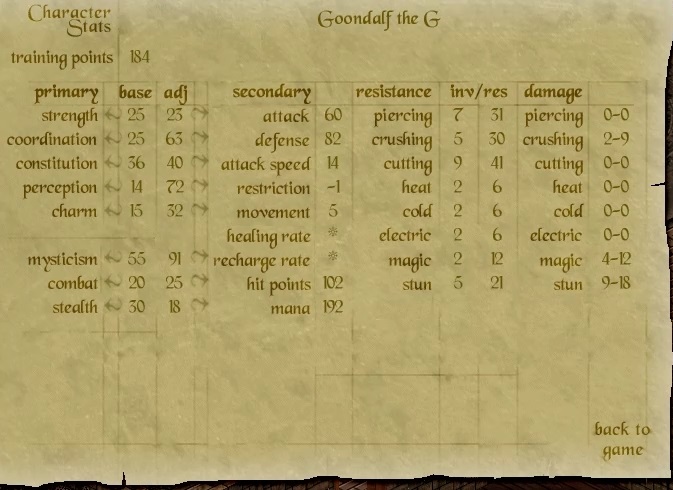 Character Stats
Goondalf the G
training points 184
primary base adj secondary resistance inv/res damage
strength 25 23 attack 60 piercing 7 31 piercing 0-0
coordination 25 63 defense 82 crushing 5 30 crushing 2-9
constitution 36 40 attack speed 14 cutting 9 41 cutting 0-0
perception 14 72 restriction -1 heat 2 6 heat 0-0
charm 15 32 movement 5 cold 2 6 cold 0-0
healing rate * electric 2 6 electric 0-0
mysticism 55 91 recharge rate * magic 2 12 magic 4-12
combat 20 25 hit points 102 stun 5 21 stun 9-18
stealth 30 18 mana 192
back to
game